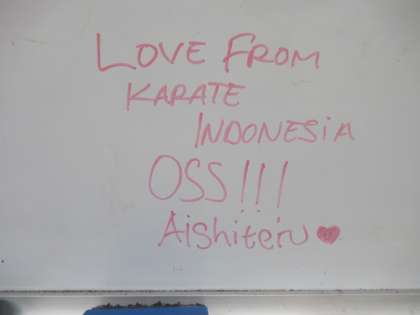 LOVE FROM
KARATE
INDONESIA
OSS!!!
Aishiteru ♥